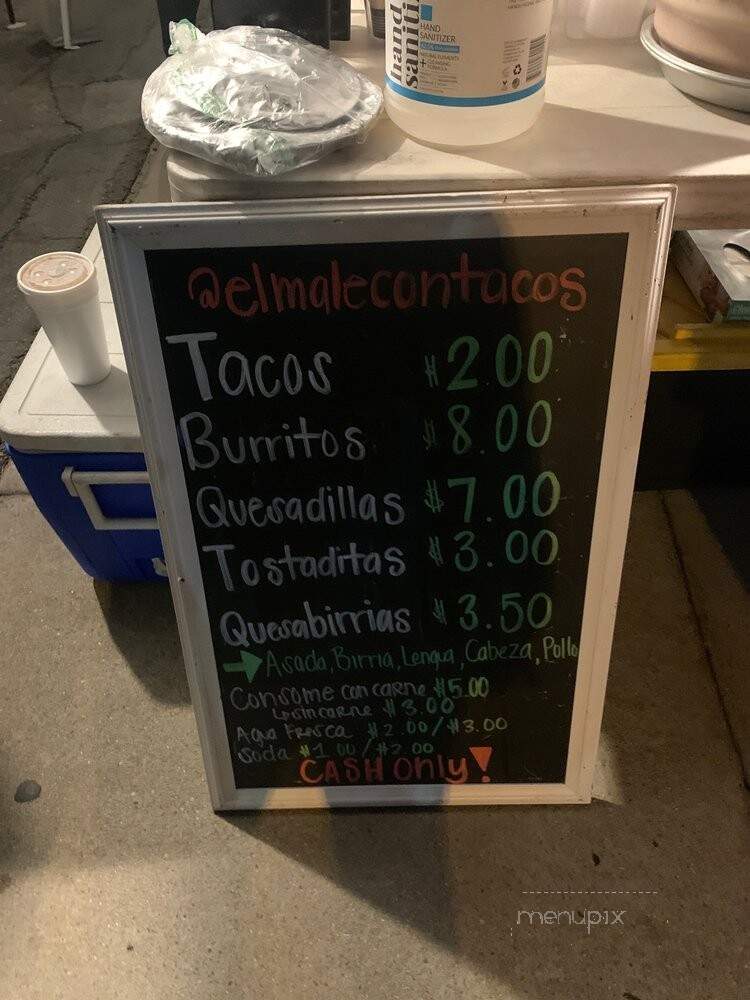 hand sanitizer
HAND
SANITIZER
NATURAL ELEMENTS
+ CLEANSING
FORMULA
@elmalecontacos
Tacos $2.00
Burritos $8.00
Quesadillas $7.00
Tostaditas $3.00
Quesabirrias $3.50
→ Asada, Birria, Lengua, Cabeza, Pollo
Consome con carne $5.00
↳ sin carne $3.00
Agua Fresca $2.00/$3.00
Soda $1.00/$2.00
CASH only!
menupix